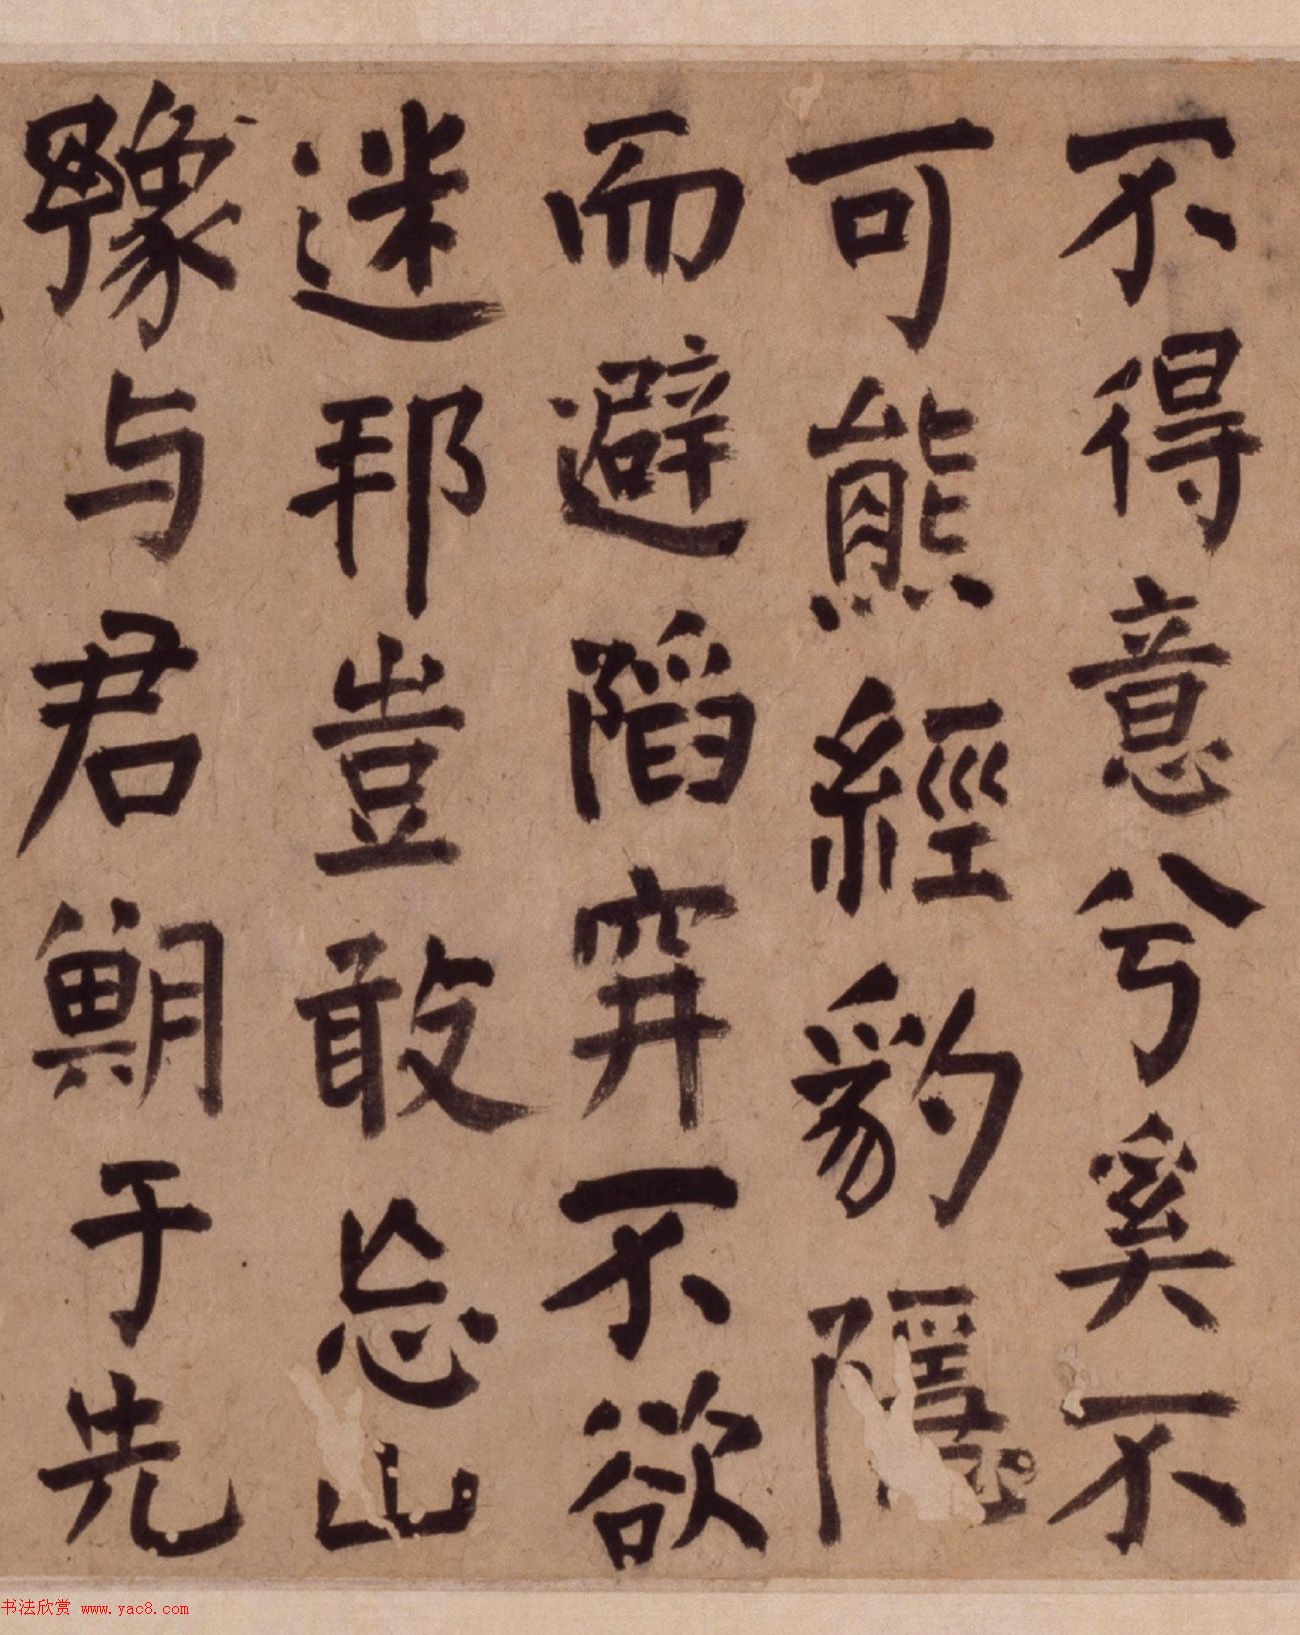 不得意兮奚不
可熊經豹隱
而避陷穽不欲
迷邦豈敢忘山
豫与君期于先
书法欣赏 www.yac8.com